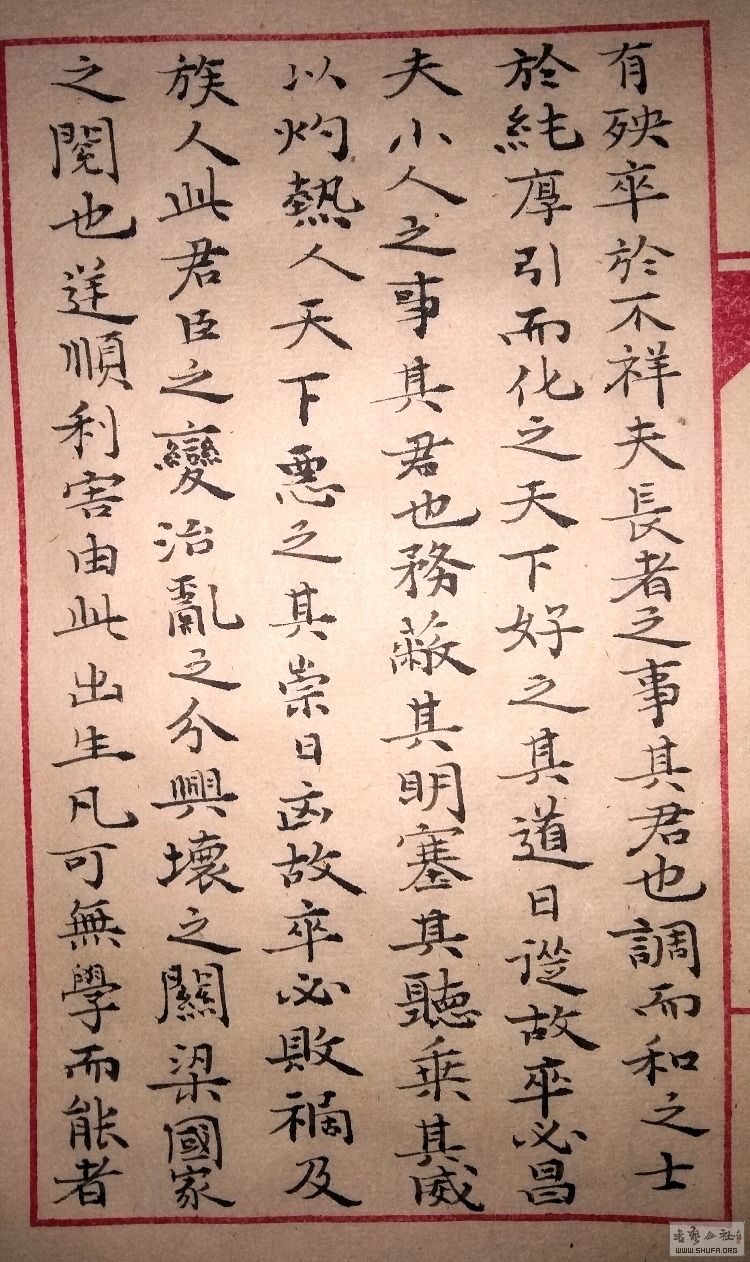 有殃卒於不祥夫長者之事其君也調而和之士
於純厚引而化之天下好之其道日從故卒必昌
夫小人之事其君也務蔽其明塞其聽乗其威
以灼熱人天下惡之其崇日凶故卒必敗禍及
族人此君臣之變治亂之分興壞之關梁國家
之閱也逆順利害由此出生凡可無學而能者
書藝公社
WWW.SHUFA.ORG